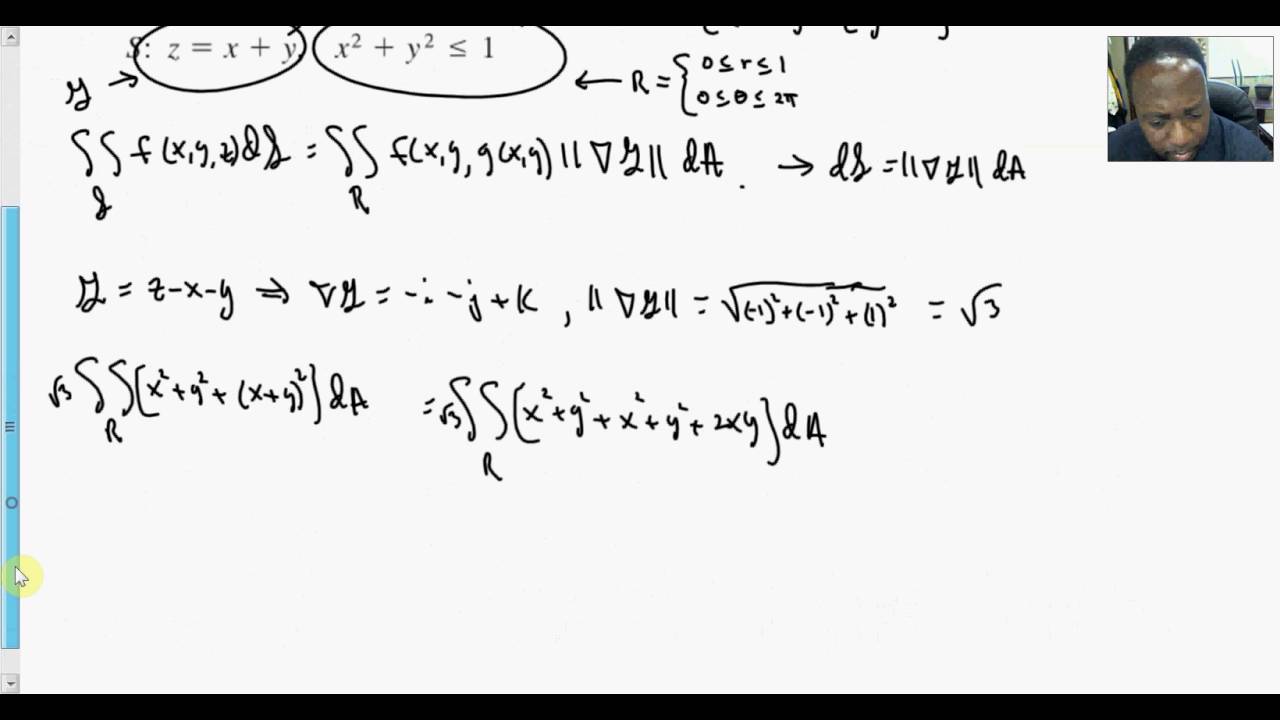 S: z = x + y, x² + y² ≤ 1
R = { 0 ≤ r ≤ 1
0 ≤ θ ≤ 2π
G →
∫∫ f(x,y,z)dS = ∫∫ f(x,y,g(x,y)) ||∇G|| dA. → dS = ||∇G|| dA
S R
G = z-x-y ⇒ ∇G = -i -j + k, ||∇G|| = √(-1)²+(-1)²+(1)² = √3
√3 ∫∫ [x²+y²+(x+y)²] dA = √3 ∫∫ [x²+y²+x²+y²+2xy] dA
R R